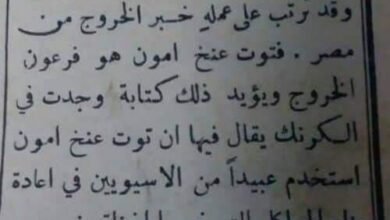 وقد ترتب على عمله خبر الخروج من
مصر . فتوت عنخ امون هو فرعون
الخروج ويؤيد ذلك كتابة وجدت في
الكرنك يقال فيها ان توت عنخ امون
استخدم عبيداً من الاسيويين في اعادة